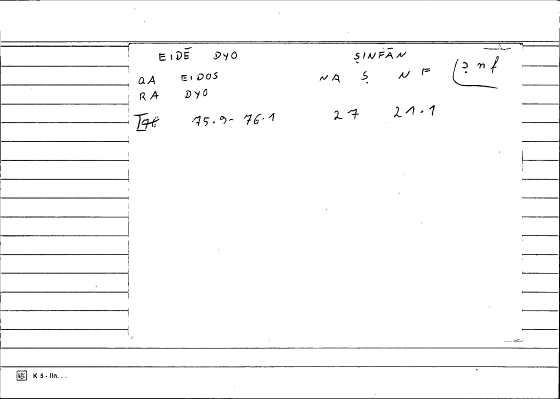 EIDĒ DYO ṢINFĀN
QA EIDOS NA Ṣ N F ṣ n f
RA DYO
75.9- 76.1 27 21.1
K 5 - lin. . .